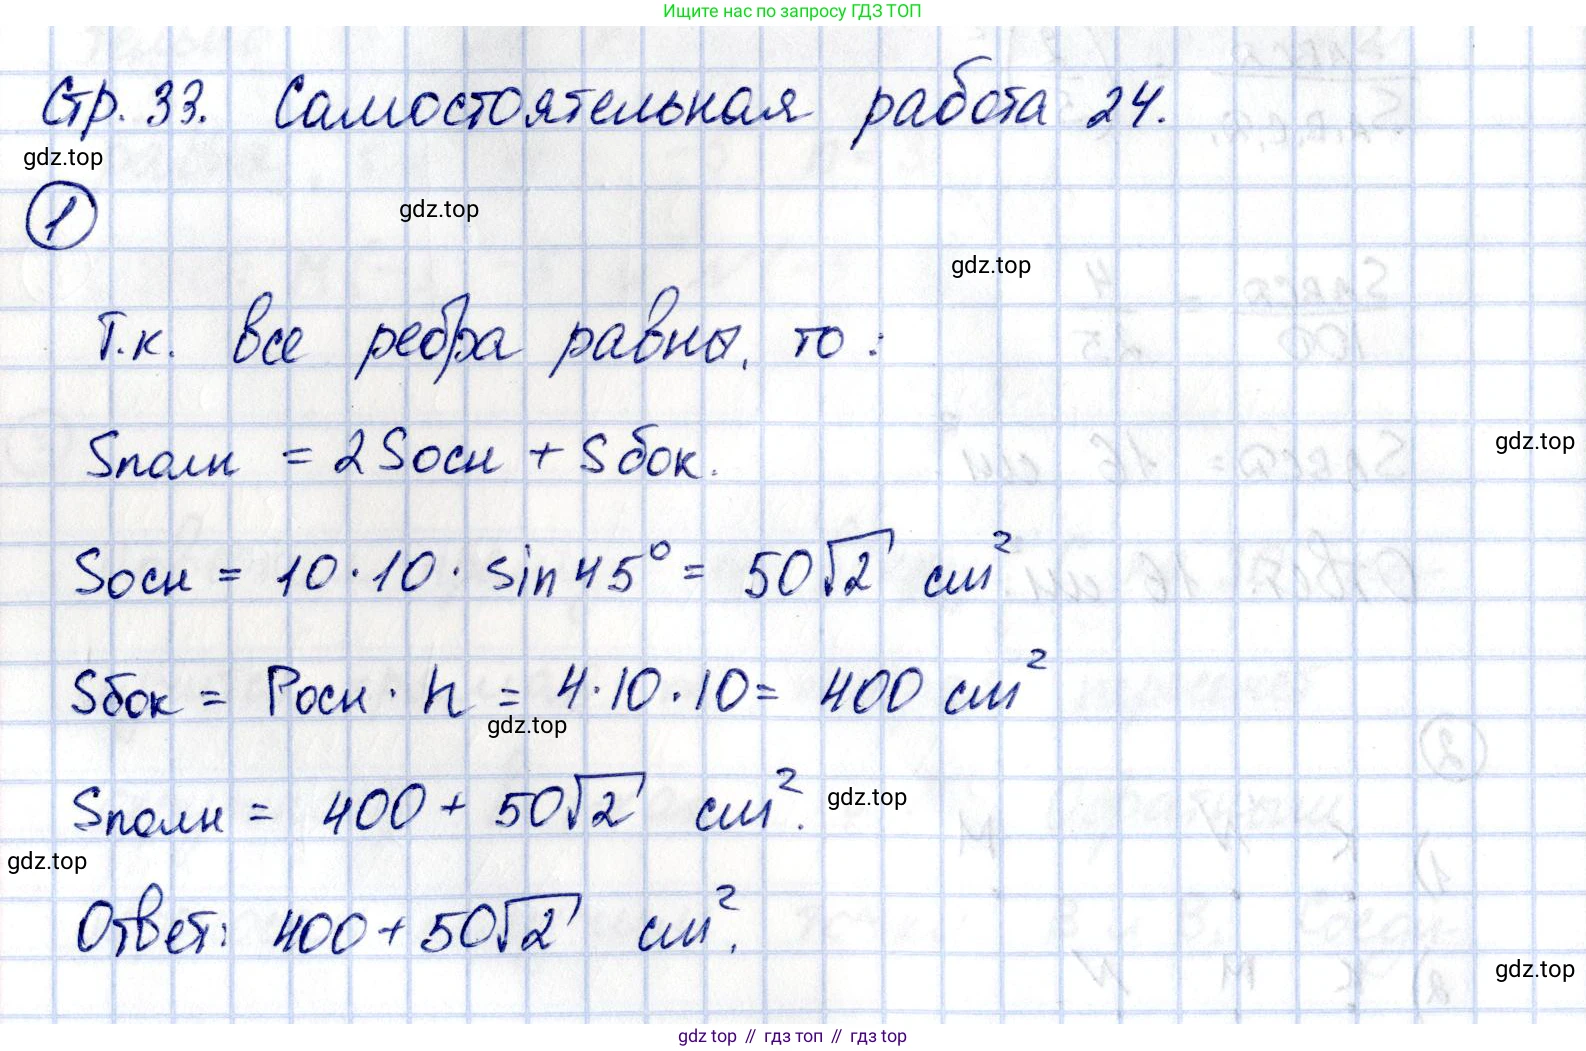 Ищите нас по запросу ГДЗ ТОП
Стр. 33. Самостоятельная работа 24.
gdz.top
1
gdz.top
gdz.top
Т.к. все ребра равны, то:
Sполн = 2Sосн + Sбок.
gdz.top
Sосн = 10·10· sin45° = 50√2 см²
Sбок = Pосн · h = 4·10·10= 400 см²
gdz.top
Sполн = 400 + 50√2 см².
gdz.top
gdz.top
Ответ: 400 + 50√2 см².
gdz.top
gdz top // гдз топ // gdz top